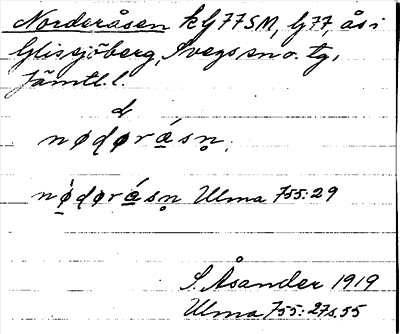 Norderåsen kG77SM, G77, ås i
Glissjöberg, Svegs sn o. tg,
Jämtl. l.
d
nødørásn.
nǿdørásn Ulma 755:29
S. Åsander 1919
Ulma 755:27 s. 55